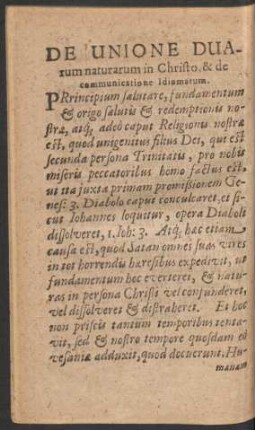 DE UNIONE DUA-
rum naturarum in Christo, & de
communicatione Idiomatum.
PRrincipium salutare, fundamentum
& origo salutis & redemptionis no-
stræ, atq; adeò caput Religionis nostræ
est, quod unigenitus filius Dei, qui est
secunda persona Trinitatis, pro nobis
miseris peccatoribus homo factus est,
ut ita juxta primam promißionem Ge-
nes: 3. Diabolo caput conculcaret, et si-
cut Iohannes loquitur, opera Diaboli
dissolveret, 1. Ioh: 3. Atq; hac etiam
causa est, quod Satan omnes suas vires
in tot horrendis hæresibus expedivit, ut
fundamentum hoc everteret, & natu-
ras in persona Christi vel conjunderet,
vel dissolveret & distraheret. Et hoc
non priscis tantum temporibus tenta-
vit, sed & nostro tempore quosdam eò
vesaniæ adduxit, quod docuerunt, Hu-
manam